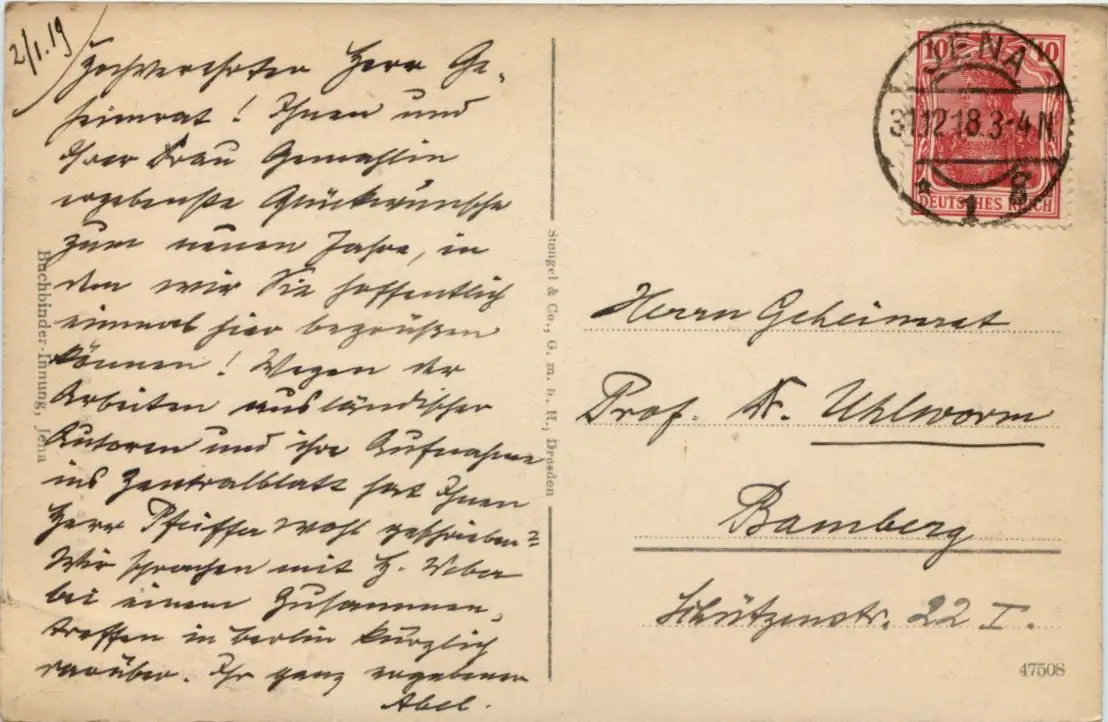 2/1.19
Hochverehrter Herr Ge-
heimrat! Ihnen und
Ihrer Frau Gemahlin
ergebenste Glückwünsche
zum neuen Jahre, in
dem wir Sie hoffentlich
einmal hier begrüßen
können! Wegen der
Arbeiten ausländischer
Autoren und ihre Aufnahme
ins Zentralblatt hat Ihnen
Herr Pfeiffer wohl geschrieben?
Wir sprachen mit H. Weber
bei einem Zusammen-
treffen in Berlin kürzlich
darüber. Ihr ganz ergebener
Abel.
Buchbinder-Innung, Jena
Stengel & Co., G. m. b. H., Dresden
10 10
DEUTSCHES REICH
JENA
31.12.18.3-4N
* 1
Herrn Geheimrat
Prof. Dr. Uhlworm
Bamberg
Schützenstr. 22 I.
47508